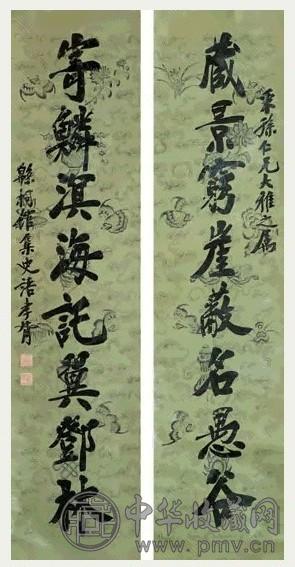 藏景窮崖蔽名愚谷
仁兄大雅之屬
寄鱗溟海託翼鄧林
緜桐館集史語孝胥
中华收藏网
www.pmv.cn